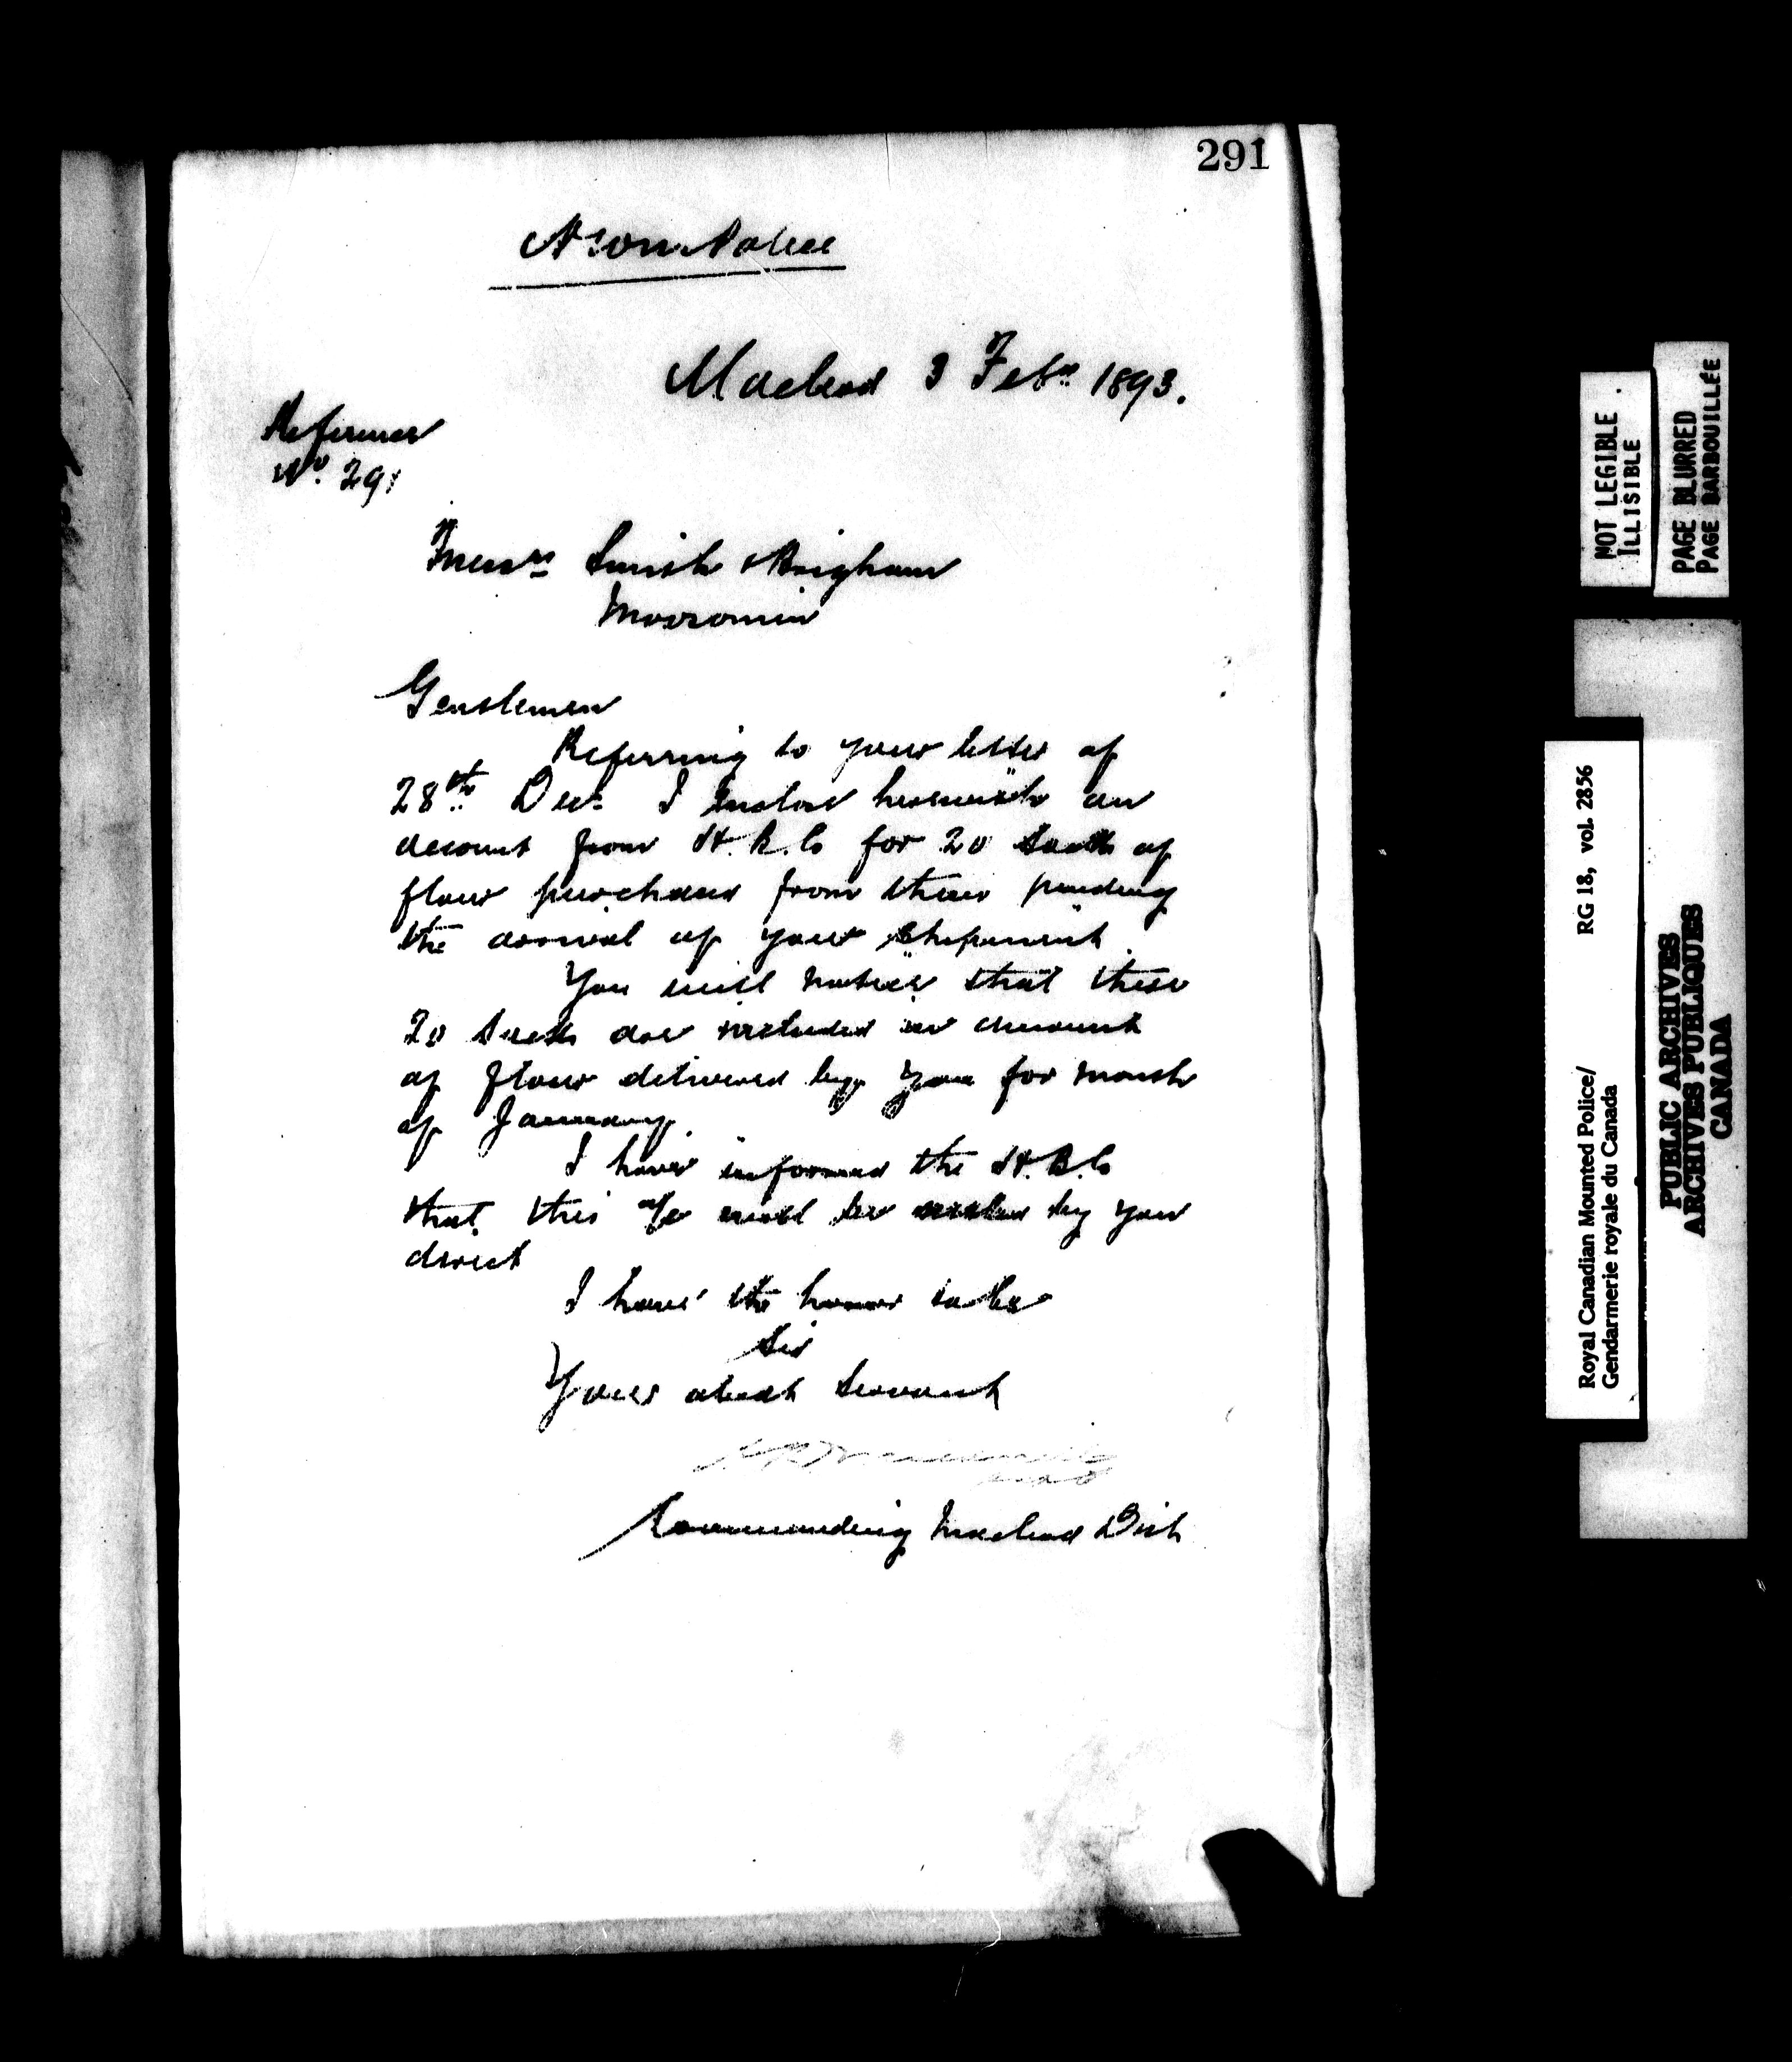 291
N W M Police
Macleod 3 Feby 1893.
Reference
No. 291
Messrs Smith & Brigham
Moosomin
Gentlemen
Referring to your letter of
28th Decr I enclose herewith an
account from H.B.Co for 20 sacks of
flour purchased from them pending
the arrival of your shipment.
You will notice that these
20 sacks are included in amount
of flour delivered by you for month
of January.
I have informed the H.B.Co
that this a/c will be settled by you
direct
I have the honor to be
Sir
Your obedt Servant
Commanding Macleod Dist
NOT LEGIBLE
ILLISIBLE
PAGE BLURRED
PAGE BARBOUILLÉE
Royal Canadian Mounted Police/ RG 18, vol. 2856
Gendarmerie royale du Canada
PUBLIC ARCHIVES
ARCHIVES PUBLIQUES
CANADA